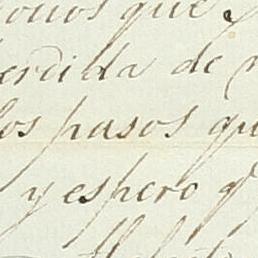 que
perdida de
los pasos qu
y espero q